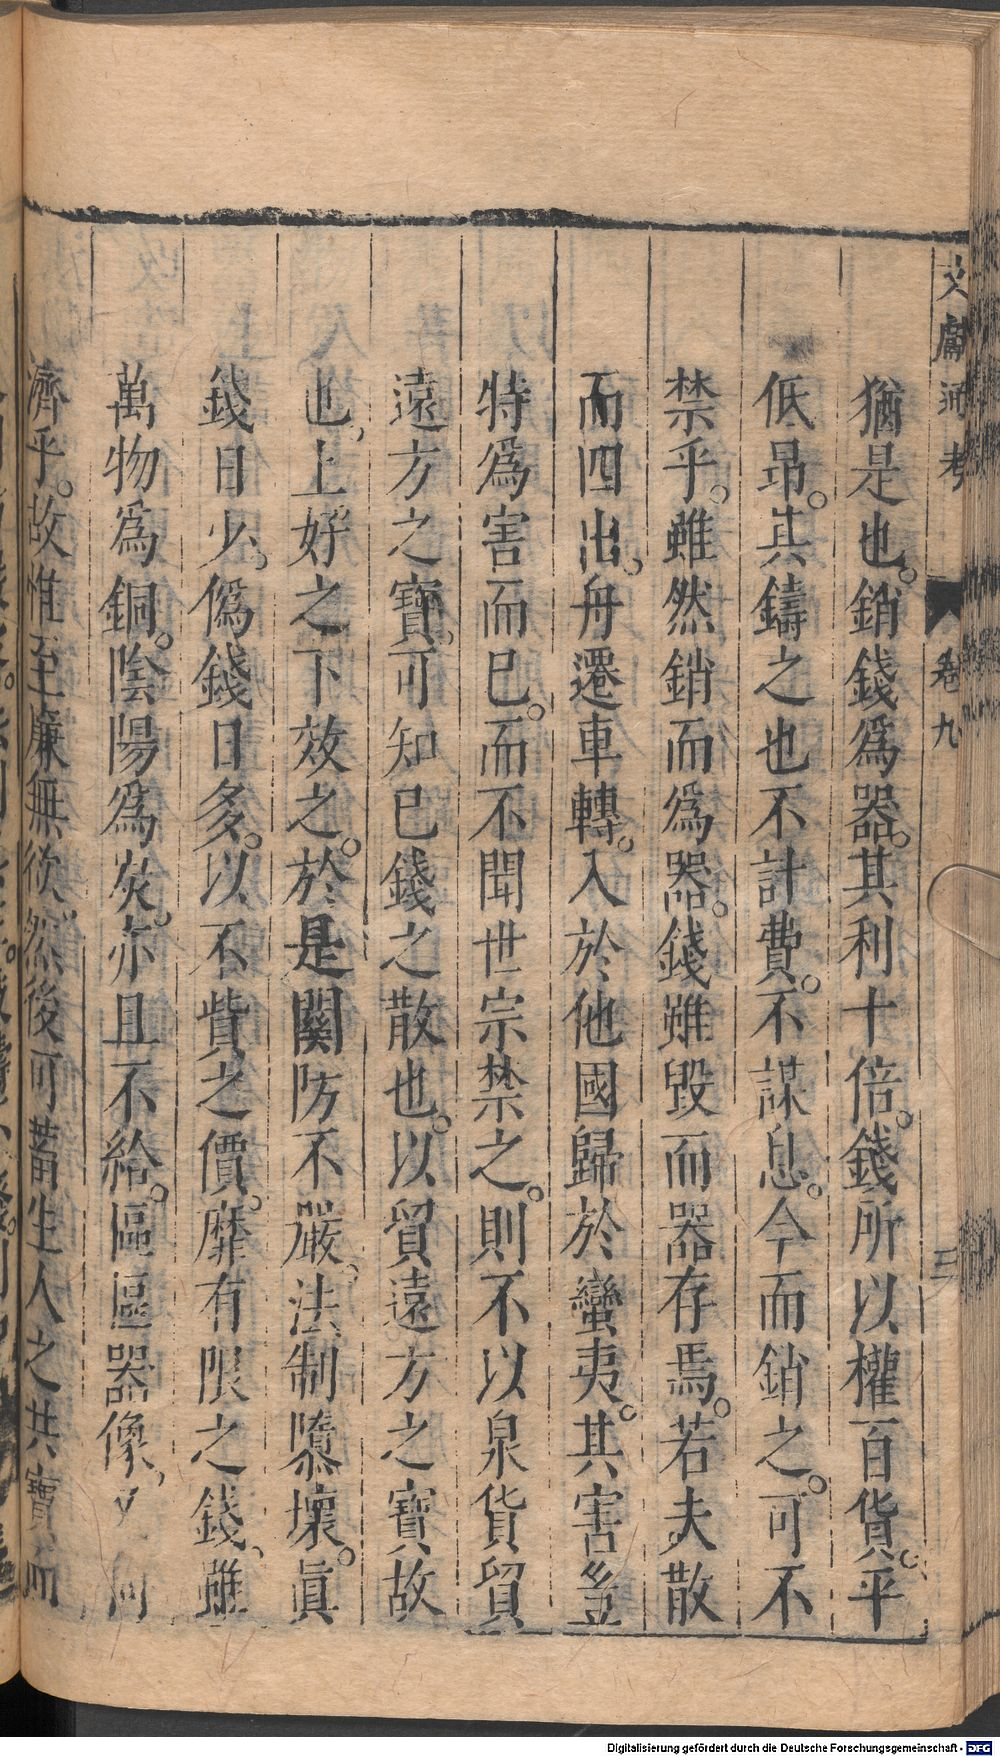 文獻通考 卷九 三
猶是也。銷錢爲器。其利十倍。錢所以權百貨。平
低昂。其鑄之也不計費。不謀息。今而銷之。可不
禁乎。雖然銷而爲器。錢雖毀而器存焉。若夫散
而四出。舟遷車轉。入於他國歸於蠻夷。其害豈
特爲害而已。而不聞世宗禁之。則不以泉貨貿
遠方之寶。可知已錢之散也。以貿遠方之寶故
也。上好之下效之。於是關防不嚴。法制隳壞。眞
錢日少。僞錢日多。以不貲之價。靡有限之錢。雖
萬物爲銅。陰陽爲炭。亦且不給。區區器像。又何
濟乎。故惟至廉無欲。然後可蓄生人之共寶而
Digitalisierung gefördert durch die Deutsche Forschungsgemeinschaft - DFG